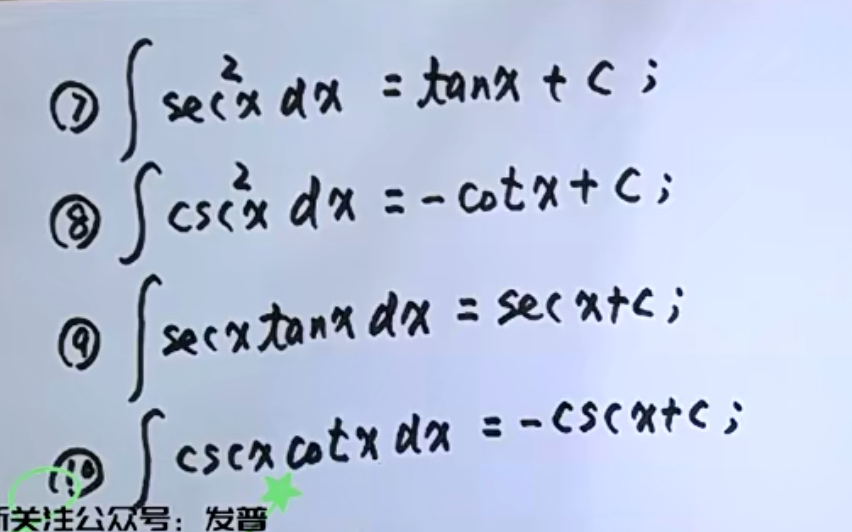 ⑦ ∫ sec²x dx = tanx + C ;
⑧ ∫ csc²x dx = -cotx + C ;
⑨ ∫ secx tanx dx = secx+C ;
⑩ ∫ cscx cotx dx = -cscx+C ;
关注公众号：发普